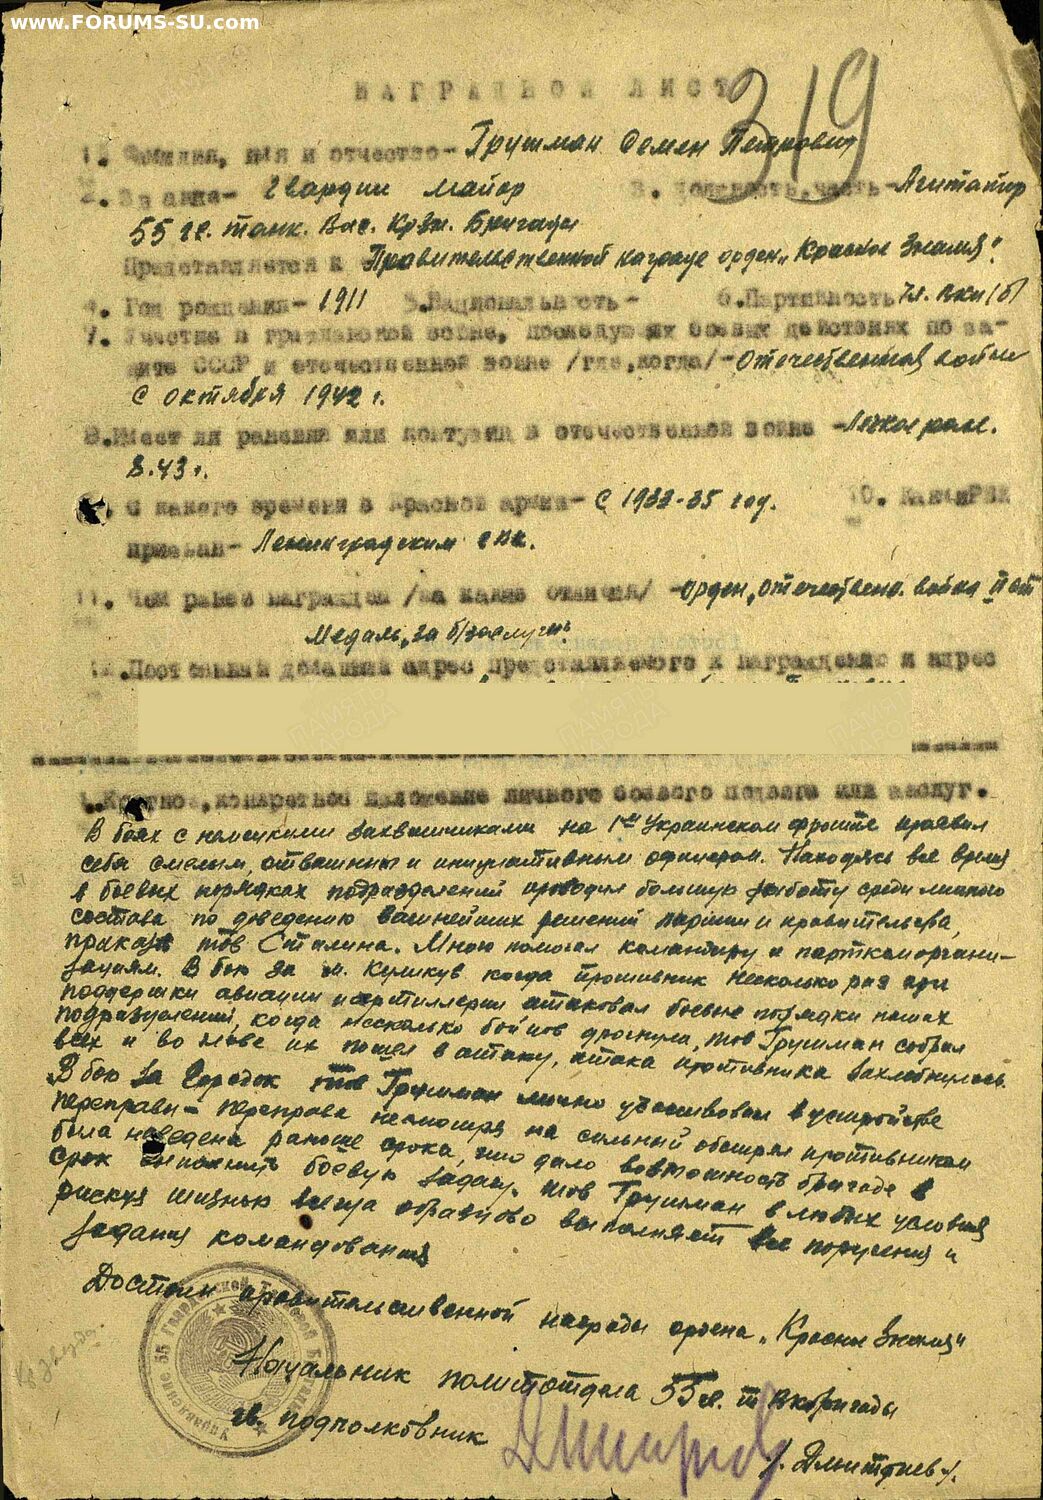 www.FORUMS-SU.com
319
НАГРАДНОЙ ЛИСТ
1. Фамилия, имя и отчество- Грушман Семен Петрович
2. Звание- Гвардии майор 3. Должность, часть- Агитатор
55 гв. танк. Вас. Крзн. Бригады
Представляется к Правительственной награде орден „Красное Знамя".
4. Год рождения- 1911 5. Национальность- 6. Партийность чл. вкп(б)
7. Участие в гражданской войне, последующих боевых действиях по за-
щите СССР и отечественной войне /где, когда/- Отечественная война
с октября 1942 г.
8. Имеет ли ранения или контузии в отечественной войне - Легкое ран.
8.43 г.
9. С какого времени в Красной армии- С 1933-35 год. 10. Каким РВК
призван- Ленинградским
11. Чем ранее награжден /за какие отличия/ -орден „отечествено. война II ст
Медаль „за б/заслуги".
12. Постоянный домашний адрес представляемого к награждению и адрес
1. Краткое, конкретное изложение личного боевого подвига или заслуг.
В боях с немецкими захватчиками на 1ом Украинском фронте проявил
себя смелым, отважным и инициативным офицером. Находясь все время
в боевых порядках подразделений проводил большую работу среди личного
состава по доведению важнейших решений партии и правительства,
приказов тов Сталина. Много помогал командиру и парткоморгани-
зациям. В бою за м. Куликув когда противник несколько раз при
поддержки авиации и артиллерии атаковал боевые порядки наших
подразделений, когда несколько бойцов дрогнули, тов Грушман собрал
всех и во главе их пошел в атаку, атака противника захлебнулась.
В бою за Городок тов Грушман лично участвовал в устройстве
переправы - переправа несмотря на сильный обстрел противником
была наведена раньше срока, что дало возможность бригаде в
срок выполнить боевую задачу. тов Грушман в любых условиях
рискуя жизнью всегда образцово выполняет все поручения и
задания командования
Достоин правительственной награды ордена „Красное Знамя"
Начальник политотдела 55 гв. т бригады
гв. подполковник /. Дмитриев /.
Управление 55 Гвардейской Танковой Бригады
Кр Звезда